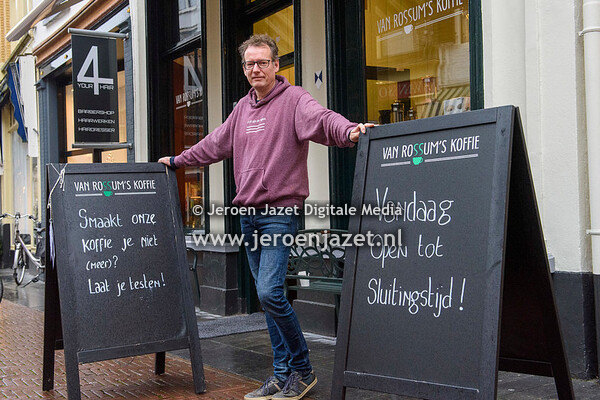 VAN ROSSUM'S KOFFIE
4
YOUR HAIR
BARBERSHOP
HAARWERKEN
HAIRDRESSER
4
VAN ROSSUM'S KOFFIE
SMAAKT ONZE
KOFFIE JE NIET
(MEER)?
LAAT JE TESTEN!
VAN ROSSUM'S KOFFIE
VANDAAG
OPEN TOT
SLUITINGSTIJD!
© Jeroen Jazet Digitale Media
www.jeroenjazet.nl